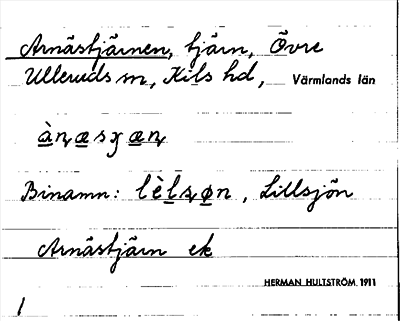 Arnästjärnen, tjärn, Övre
Ulleruds sn, Kils hd, Värmlands län
Binamn: , Lillsjön
Arnästjärn ek
HERMAN HULTSTRÖM 1911
1